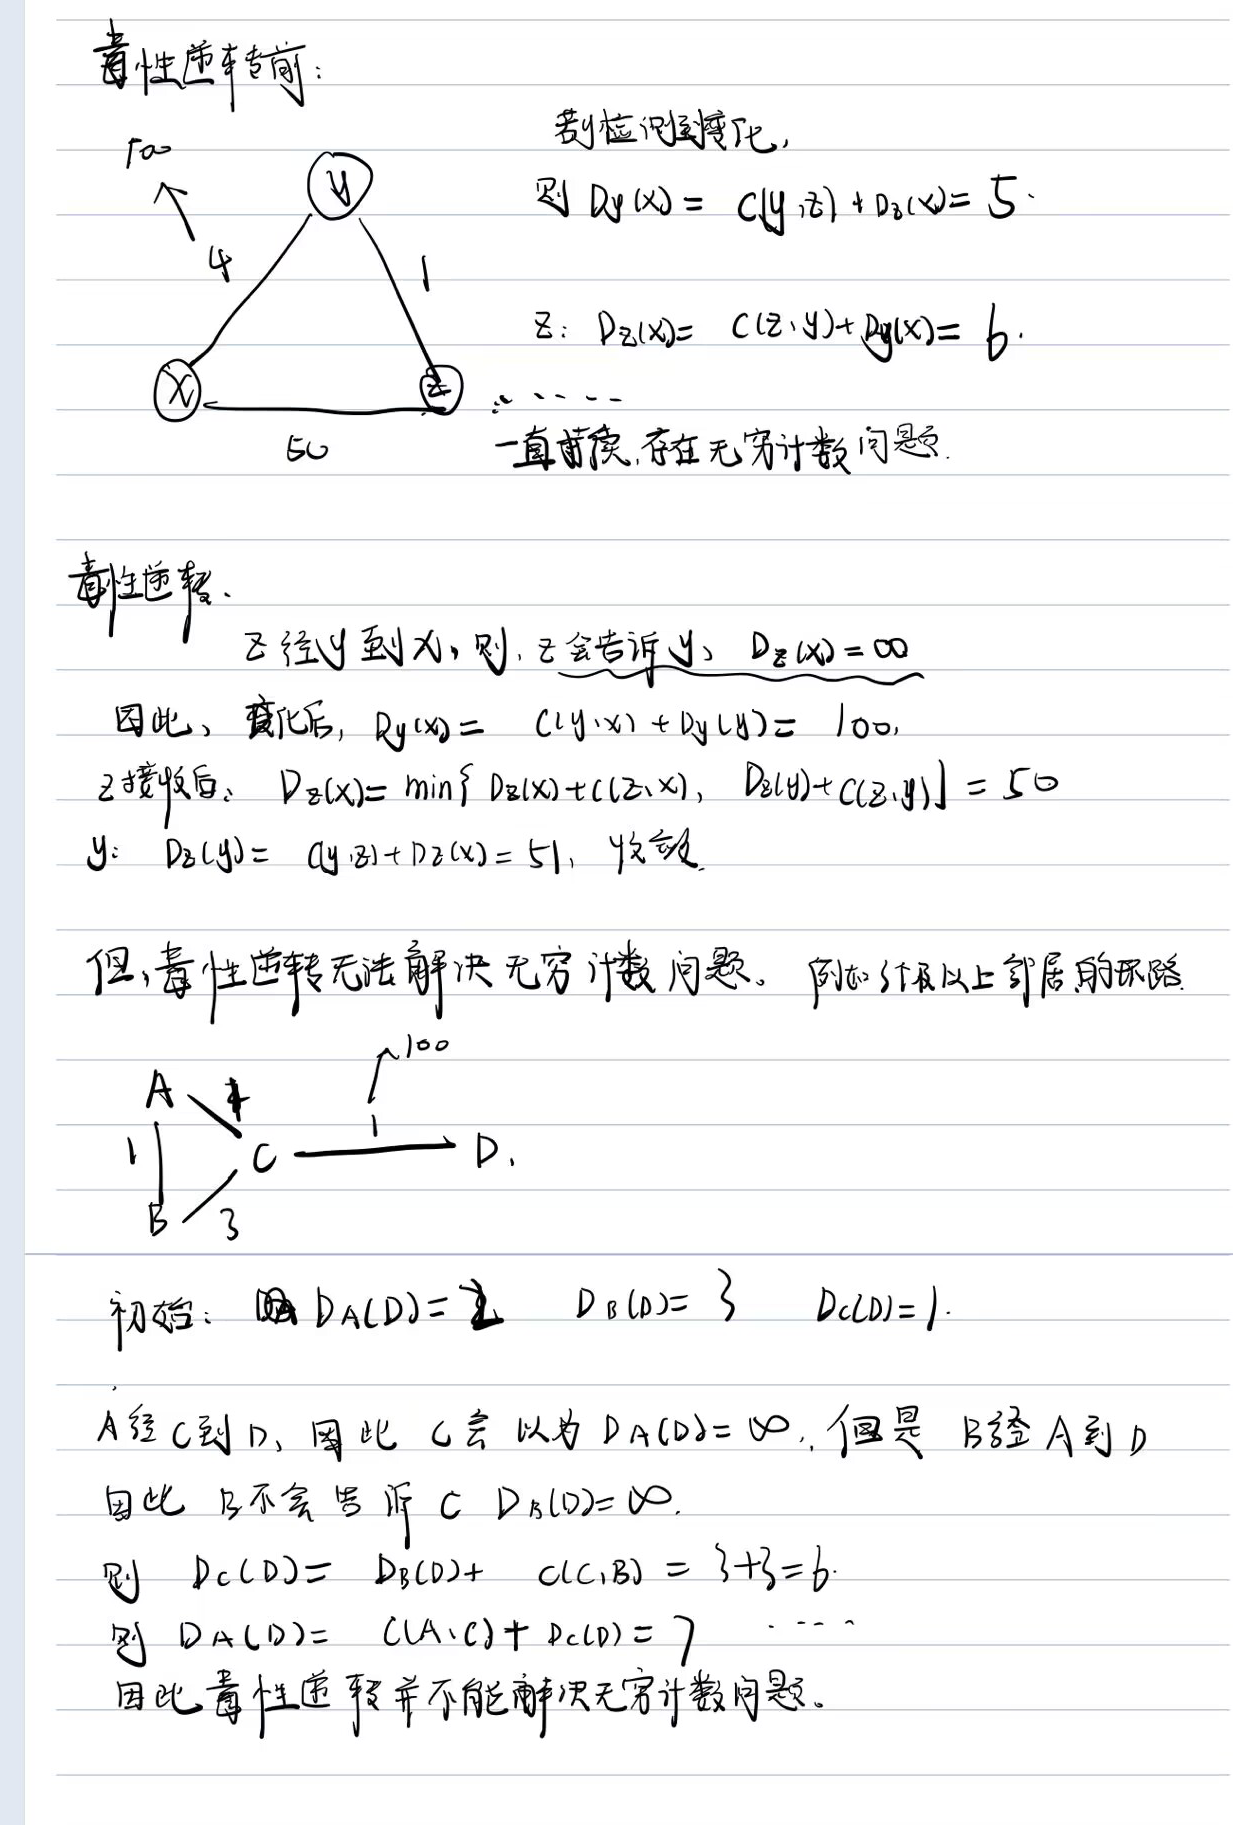 毒性逆转前：
若y检测到变化，
100
y
则 Dy(x) = C(y,z) + Dz(x) = 5.
4
1
z: Dz(x) = C(z,y) + Dy(x) = 6.
X
z
......
50
一直持续,存在无穷计数问题.
毒性逆转.
z经y到x, 则, z会告诉y、 Dz(x) = ∞
因此、变化后, Dy(x) = C(y,x) + Dy(y) = 100,
z接收后: Dz(x) = min{ Dz(x) + C(z,x), Dz(y) + C(z,y)} = 50
y: Dz(y) = C(y,z) + Dz(x) = 51, 收敛.
但,毒性逆转无法解决无穷计数问题。例如3个及以上邻居的环路.
100
A
1
1
C
D.
B
3
初始: DA(D) = 2 DB(D) = 3 Dc(D) = 1.
A经C到D, 因此 C会以为 DA(D) = ∞, 但是 B经A到D
因此 B不会告诉 C DB(D) = ∞.
则 Dc(D) = DB(D) + C(C,B) = 3+3=6.
则 DA(D) = C(A,C) + Dc(D) = 7 ....
因此毒性逆转并不能解决无穷计数问题。